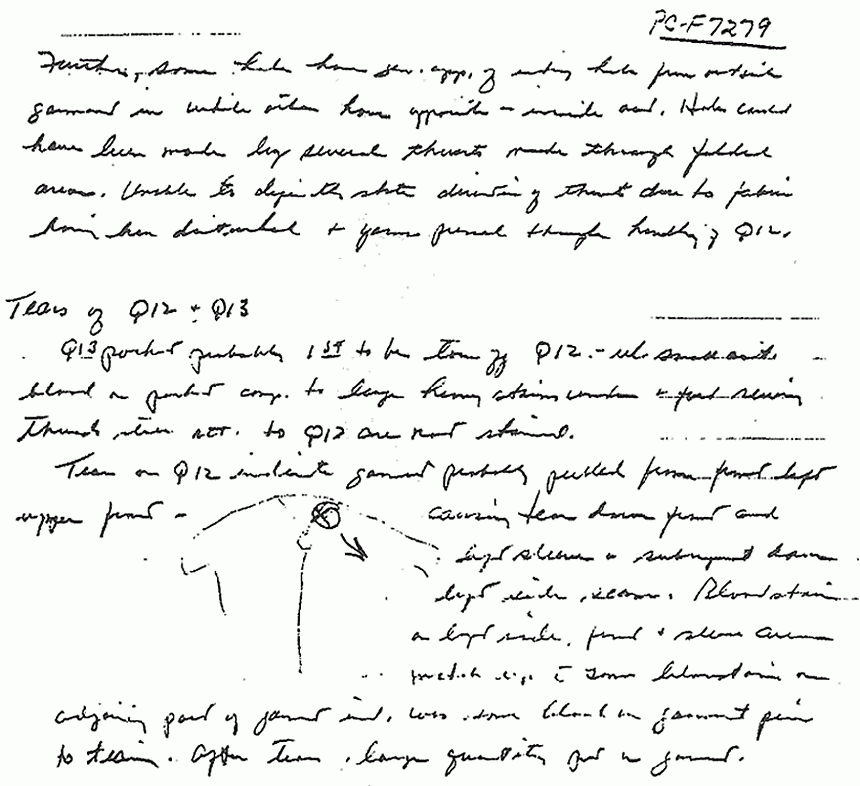 PC-F7279
Further, some holes have gen. app. of entry hole from outside
garment in while others have opposite - inside out. Holes could
have been made by several thrusts made through folded
areas. Unable to definitely state direction of thrust due to fabric
having been disturbed + yarns through handling of Q12.
Tears of Q12 + Q13
Q13 pocket probably 1st to be torn off Q12 - small amt.
blood on pocket comp. to large heavy stains under + sewing
threads still att. to Q12 are not stained.
Tears on Q12 indicate garment probably pulled from front left
upper front -
causing tear down front and
left sleeve + subsequent down
left side seam. Bloodstain
on left side, front + sleeve areas
match up c̄ some bloodstain on
adjoining part of garment ind. was some blood on garment prior
to tearing. After tear, large quantity got on garment.